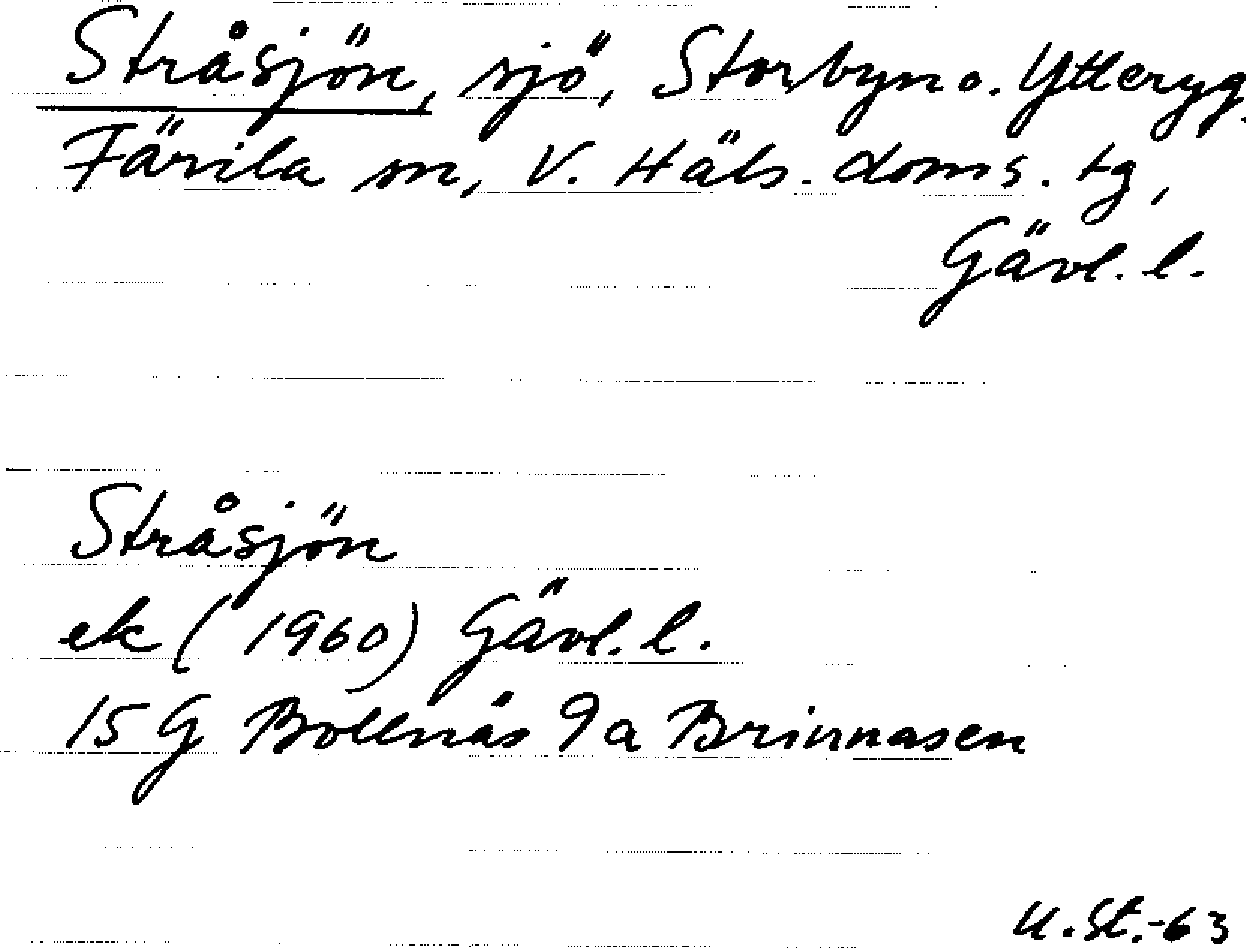 Stråsjön, sjö, Storbyn o. Ytteryg.
Färila sn, V. Häls. doms. tg,
Gävl. l.
Stråsjön
ek (1960) Gävl. l.
15 G Bollnäs 9a Brinnåsen
U.St.-63